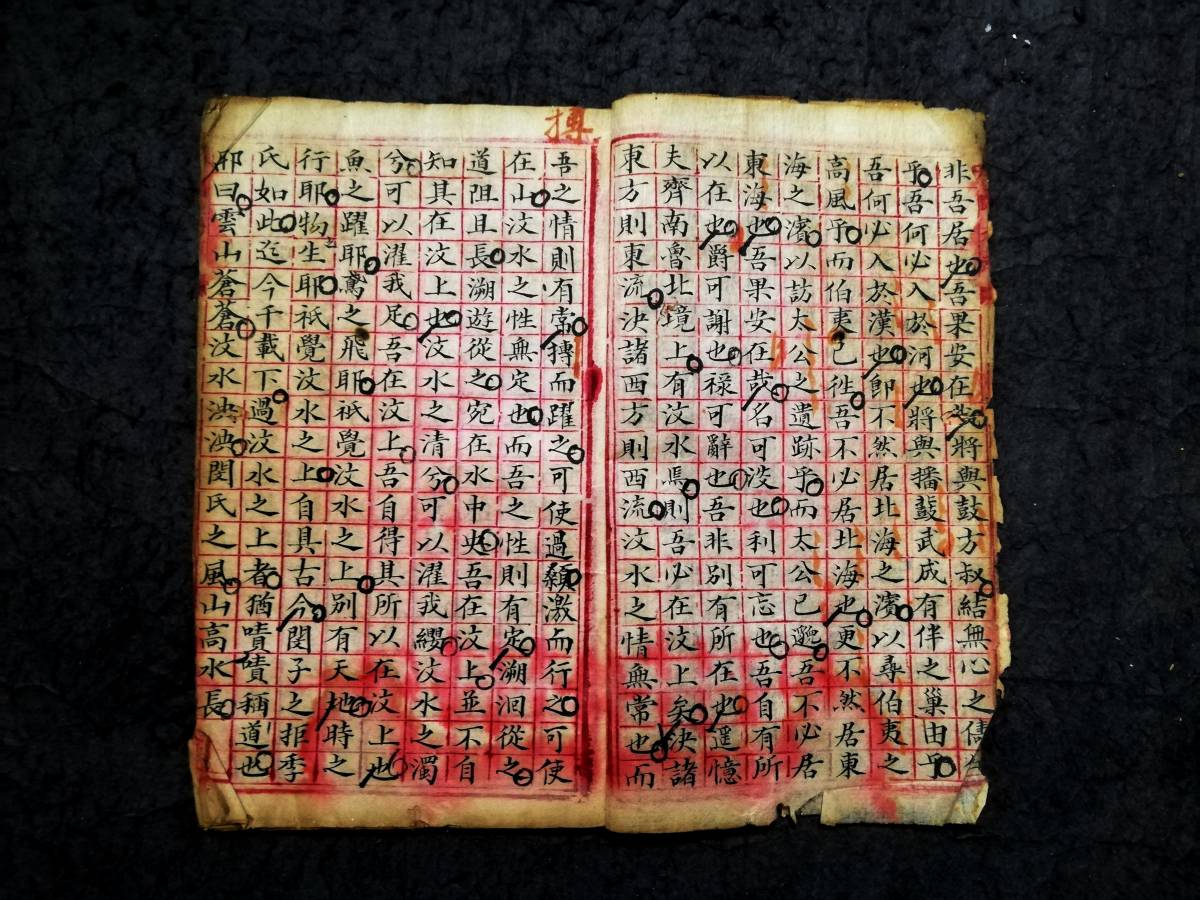 非吾居也吾果安在哉將與鼓方叔結無心之儔
乎吾何必入於河也將與播鼗武成有伴之巢由乎
吾何必入於漢也即不然居北海之濱以尋伯夷之
高風乎而伯夷已徃吾不必居北海也更不然居東
海之濱以訪太公之遺跡乎而太公已邈吾不必居
東海也吾果安在哉名可沒也利可忘也吾自有所
以在也爵可謝也祿可辭也吾非別有所在也遥憶
夫齊南魯北境上有汶水焉則吾必在汶上矣決諸
東方則東流決諸西方則西流汶水之情無常也而
搏
吾之情則有常摶而躍之可使過顙激而行之可使
在山汶水之性無定也而吾之性則有定溯洄從之
道阻且長溯遊從之宛在水中央吾在汶上並不自
知其在汶上也汶水之清兮可以濯我纓汶水之濁
兮可以濯我足吾在汶上吾自得其所以在汶上也
魚之躍耶鳶之飛耶祇覺汶水之上別有天地時之
行耶物之生耶祇覺汶水之上自具古今閔子之拒季
氏如此迄今千載下過汶水之上者猶嘖嘖稱道也
耶曰雲山蒼蒼汶水泱泱閔氏之風山高水長